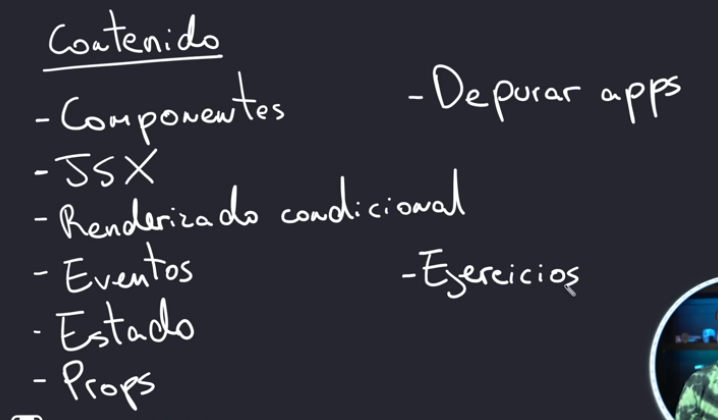 Contenido
- Componentes
- JSX
- Renderizado condicional
- Eventos
- Estado
- Props
- Depurar apps
- Ejercicios